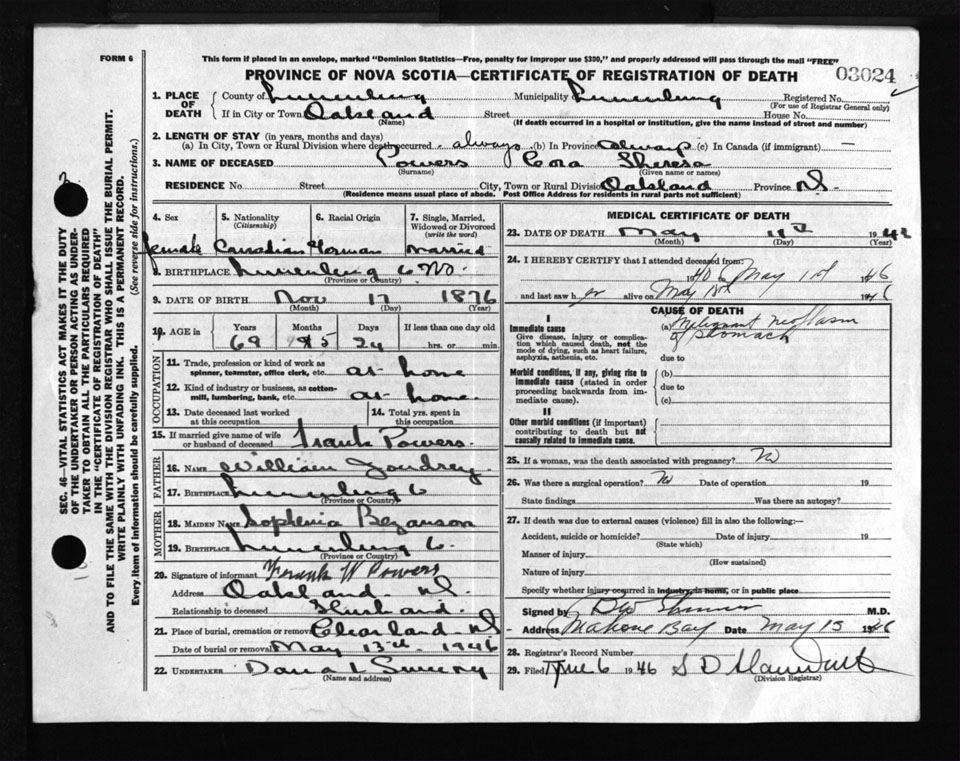 FORM 6
This form if placed in an envelope, marked "Dominion Statistics—Free, penalty for improper use $300," and properly addressed will pass through the mail "FREE"
PROVINCE OF NOVA SCOTIA—CERTIFICATE OF REGISTRATION OF DEATH 03024
1. PLACE OF DEATH County of Lunenburg Municipality Lunenburg Registered No.
(For use of Registrar General only)
If in City or Town Oakland Street House No.
(Name) (If death occurred in a hospital or institution, give the name instead of street and number)
2. LENGTH OF STAY (in years, months and days)
(a) In City, Town or Rural Division where death occurred always (b) In Province always (c) In Canada (if immigrant) —
3. NAME OF DECEASED Powers Cora Theresa
(Surname) (Given name or names)
RESIDENCE No. Street City, Town or Rural Division Oakland Province NS
(Residence means usual place of abode. Post Office Address for residents in rural parts not sufficient)
SEC. 46—VITAL STATISTICS ACT MAKES IT THE DUTY
OF THE UNDERTAKER OR PERSON ACTING AS UNDER-
TAKER TO OBTAIN ALL THE PARTICULARS REQUIRED
IN THE "CERTIFICATE OF REGISTRATION OF DEATH"
AND TO FILE THE SAME WITH THE DIVISION REGISTRAR WHO SHALL ISSUE THE BURIAL PERMIT.
WRITE PLAINLY WITH UNFADING INK. THIS IS A PERMANENT RECORD.
Every item of information should be carefully supplied. (See reverse side for instructions.)
4. Sex 5. Nationality (Citizenship) 6. Racial Origin 7. Single, Married, Widowed or Divorced (write the word)
female Canadian German married
8. BIRTHPLACE Lunenburg Co NS
(Province or Country)
9. DATE OF BIRTH Nov 17 1876
(Month) (Day) (Year)
10. AGE in Years Months Days If less than one day old
69 5 24 hrs. or min.
OCCUPATION
11. Trade, profession or kind of work as spinner, teamster, office clerk, etc. at home
12. Kind of industry or business, as cotton-mill, lumbering, bank, etc. at home
13. Date deceased last worked at this occupation 14. Total yrs. spent in this occupation
15. If married give name of wife or husband of deceased Frank Powers
FATHER
16. NAME William Joudrey
17. BIRTHPLACE Lunenburg Co
(Province or Country)
MOTHER
18. MAIDEN NAME Sophenia Bezanson
19. BIRTHPLACE Lunenburg Co
(Province or Country)
20. Signature of informant Frank W Powers
Address Oakland NS
Relationship to deceased Husband
21. Place of burial, cremation or removal Clearland NS
Date of burial or removal May 13th 1946
22. UNDERTAKER Dana L Sweeny
(Name and address)
MEDICAL CERTIFICATE OF DEATH
23. DATE OF DEATH May 11th 1946
(Month) (Day) (Year)
24. I HEREBY CERTIFY that I attended deceased from
1946 May 1st 1946
and last saw her alive on May 1st 1946
CAUSE OF DEATH
I
Immediate cause (a) Malignant neoplasm of stomach
Give disease, injury or complication which caused death, not the mode of dying, such as heart failure, asphyxia, asthenia, etc. due to
Morbid conditions, if any, giving rise to immediate cause (stated in order proceeding backwards from immediate cause). (b)
due to
(c)
II
Other morbid conditions (if important) contributing to death but not causally related to immediate cause.
25. If a woman, was the death associated with pregnancy? No
26. Was there a surgical operation? No Date of operation 19
State findings Was there an autopsy?
27. If death was due to external causes (violence) fill in also the following:—
Accident, suicide or homicide? Date of injury 19
(State which)
Manner of injury
(How sustained)
Nature of injury
Specify whether injury occurred in industry, in home, or in public place
Signed by M.D.
Address Mahone Bay Date May 15 1946
28. Registrar's Record Number
29. Filed June 6 1946 S D
(Division Registrar)